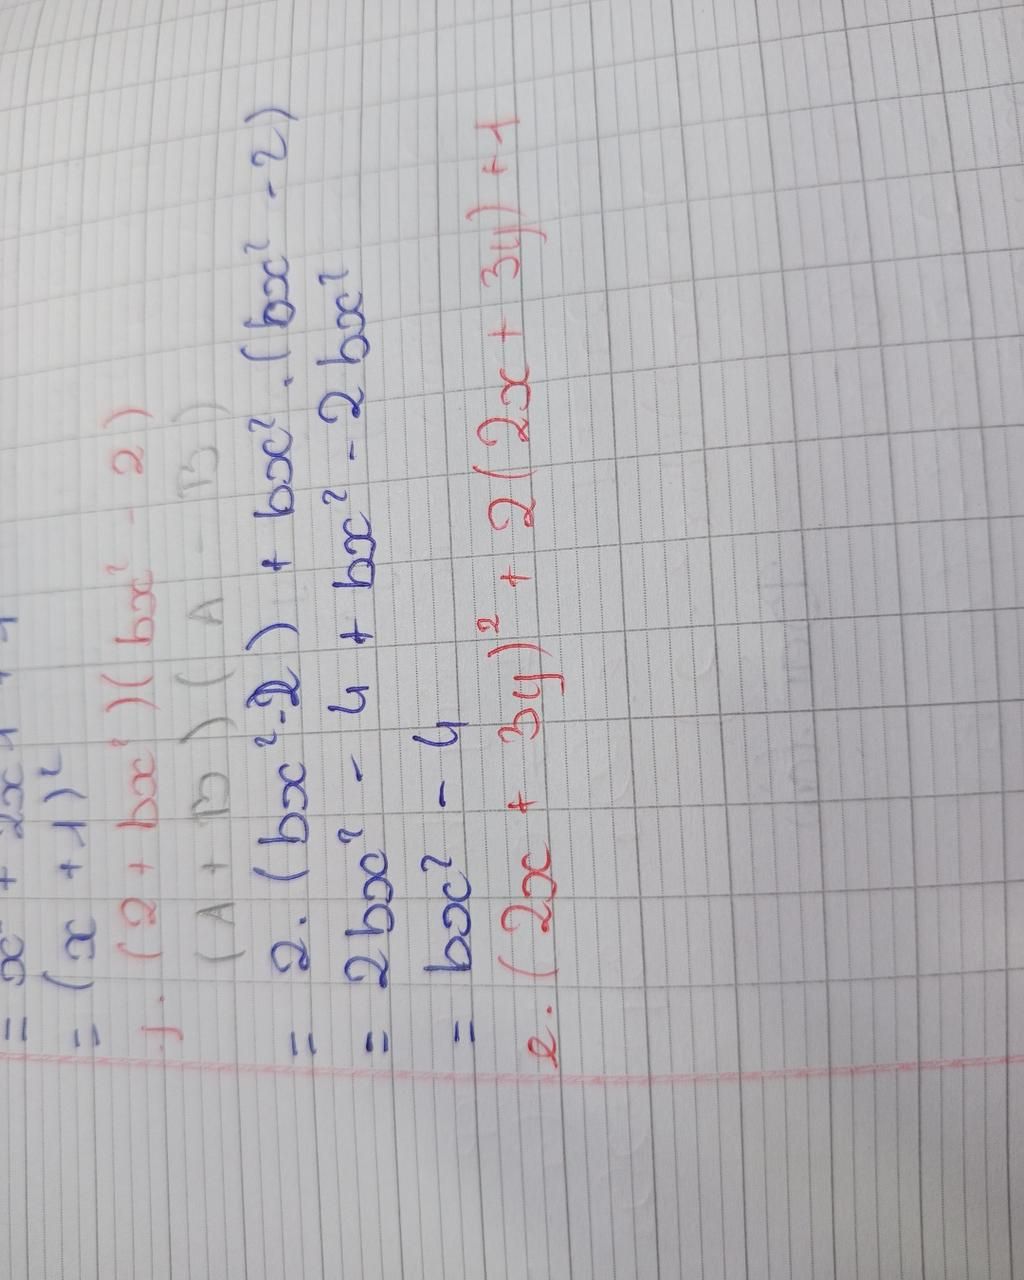 = (x + 1)²
j. (2 + bx²)(bx² - 2)
(A + B)(A - B)
= 2.(bx² - 2) + bx².(bx² - 2)
= 2bx² - 4 + bx² - 2bx²
= bx² - 4
e. (2x + 3y)² + 2(2x + 3y) + 1